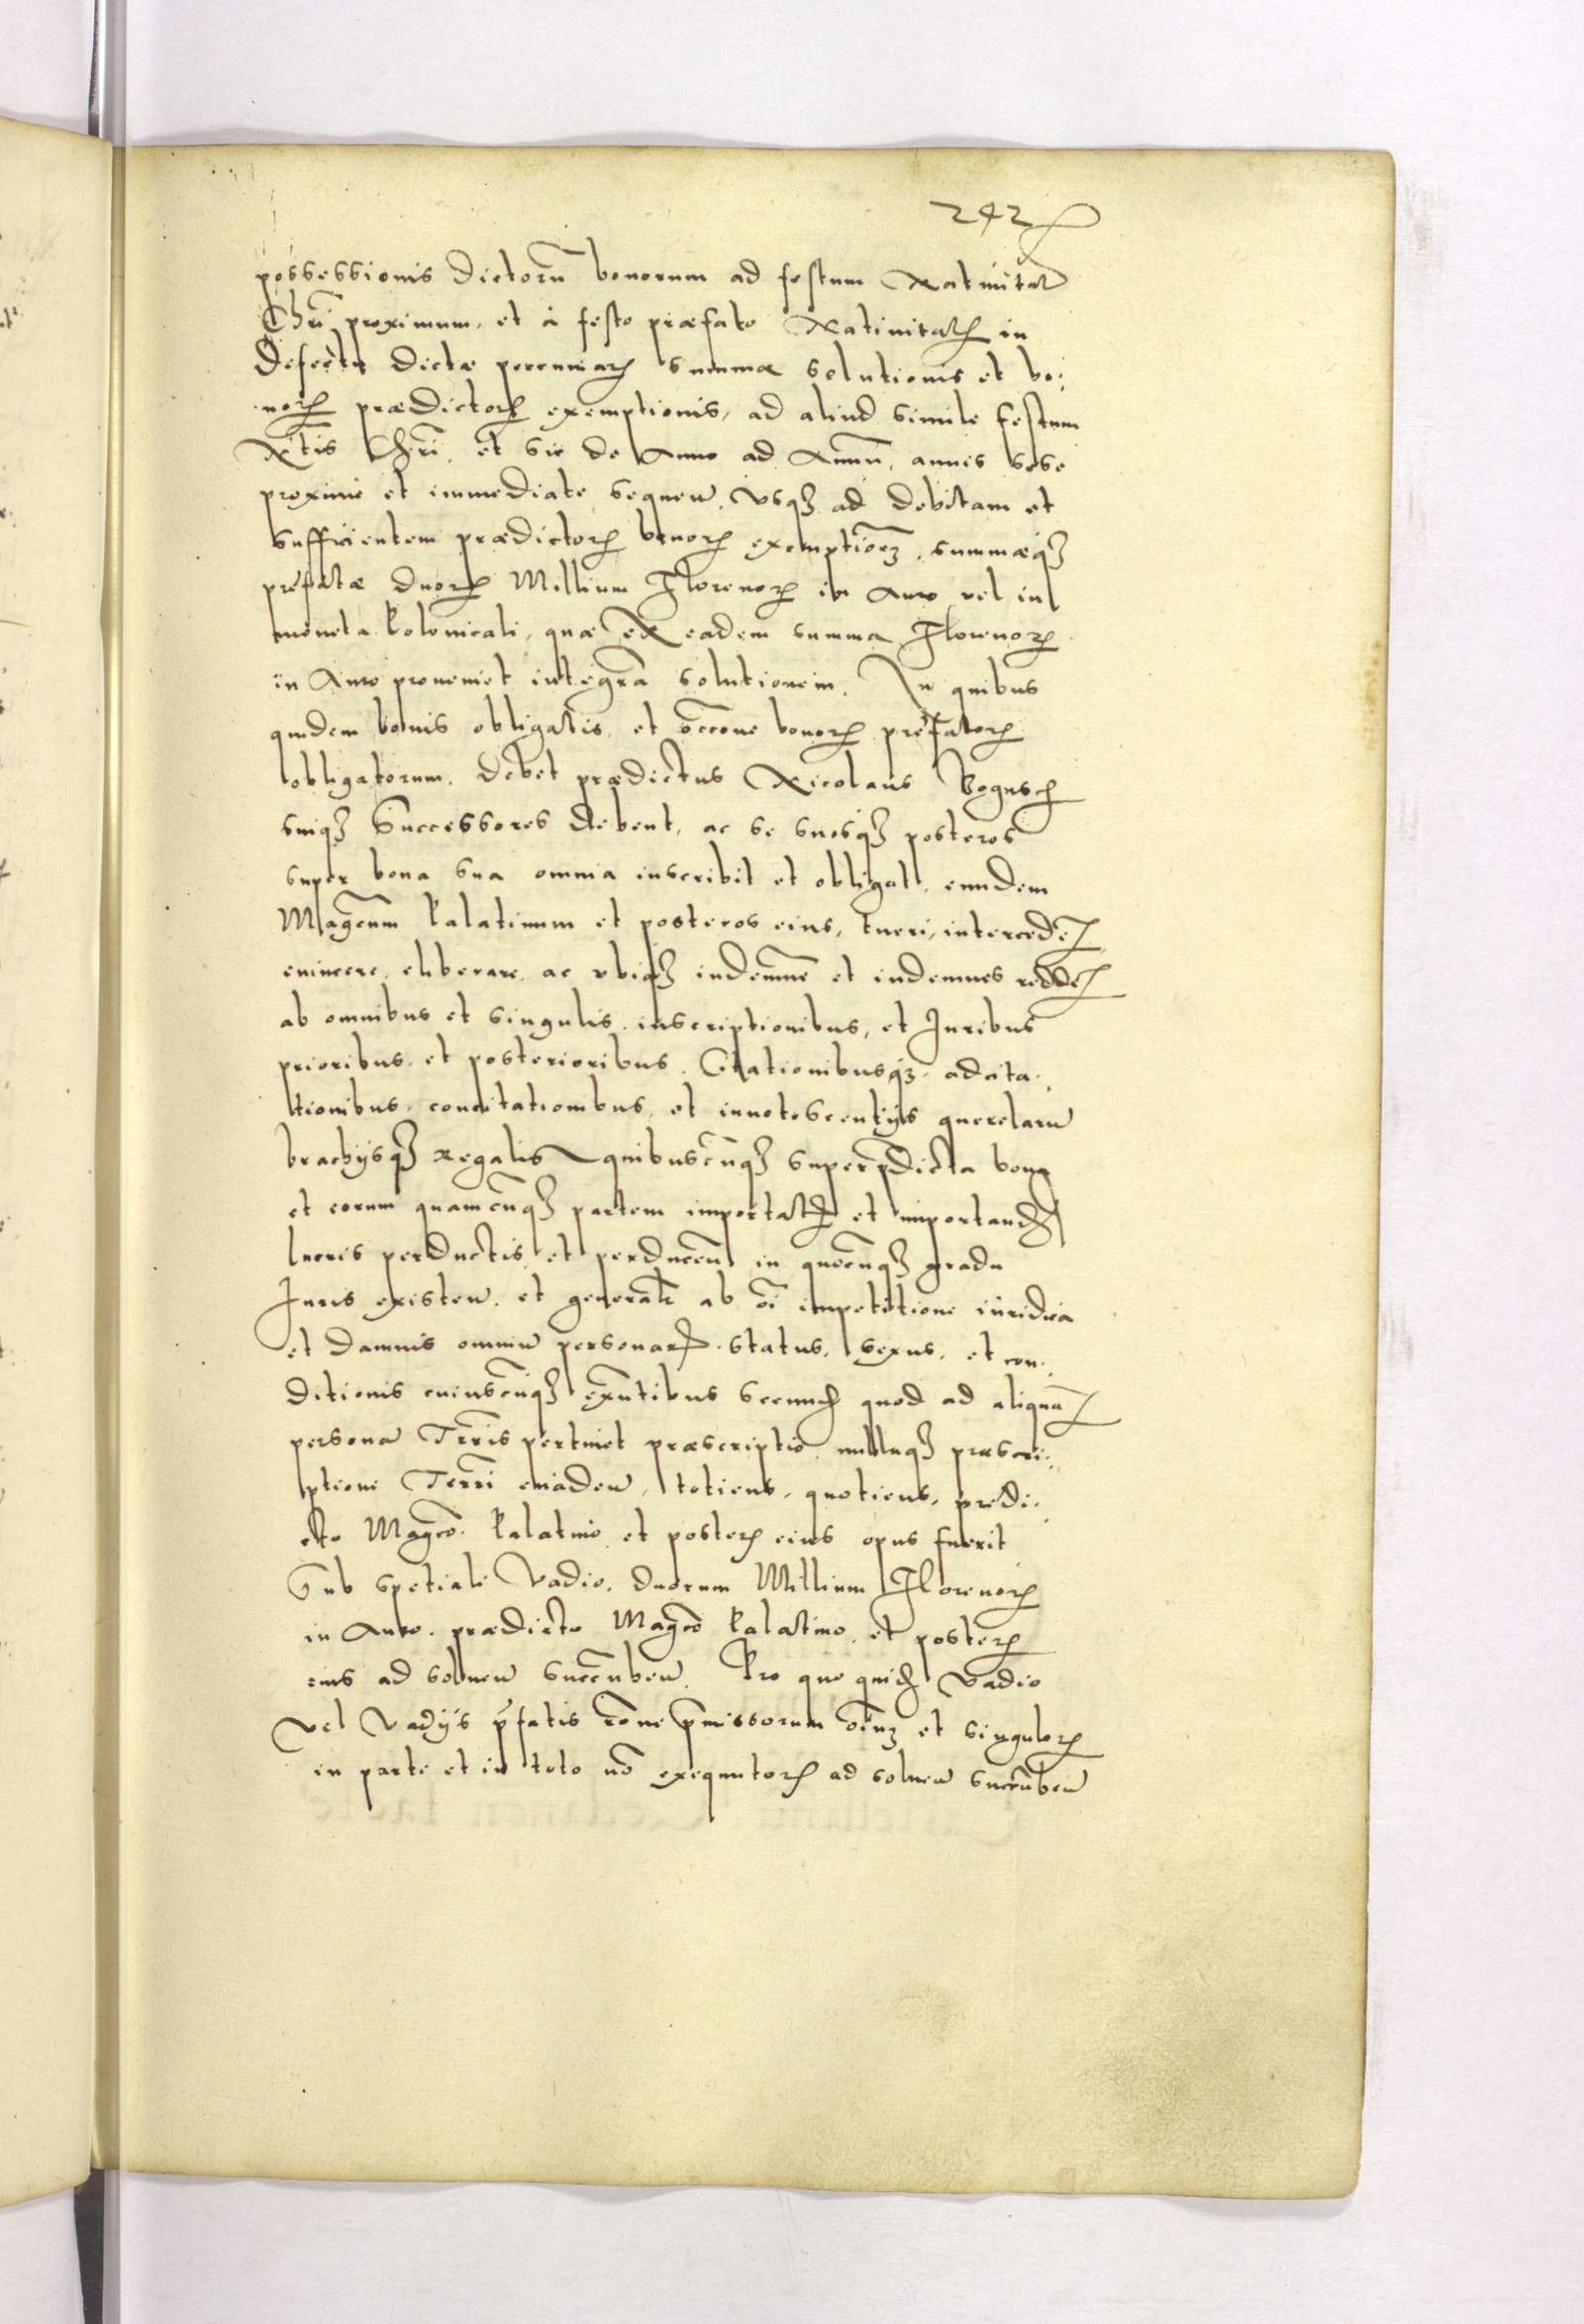 242
possessionis dictorū bonorum ad festum Natiuitat
Chri proximum, et à festo præfato Natiuitatꝭ in
defectu dictæ pecuniarꝭ summæ solutionis et bo-
norꝝ prædictorꝝ exemptionis, ad aliud simile festum
Ntis Chri, et sic de Anno ad Annū, annis sese
proximè et immediatè sequeñ, vsqꝫ ad debitam et
sufficientem prædictorꝝ bonorꝝ exemptioēꝫ, summæqꝫ
prefatæ duorꝝ Millium Florenorꝝ in Auro vel in
moneta Polonicali, quæ ex eadem summa Florenorꝝ
in Auro proueniet integrā solutionem. In quibus
quidem bonis obligatis, et rōcone bonorꝝ prefatorꝝ
obligatorum, debet prædictus Nicolaus Bogusch
suiqꝫ Successores debent, ac se suosqꝫ posteros
super bona sua omnia inscribit et obligat, eundem
Magcum Palatinum et posteros eius, tueri, intercederꝭ
euincere, eliberare, ac vbiqꝫ indemnē et indemnes redderꝭ
ab omnibus et singulis inscriptionibus, et Juribus
prioribus et posterioribus, Citationibusqꝫ adcita-
tionibus, concitationibus, et innotescentijs querelaruñ
brachijsqꝫ regalis quibuscūqꝫ super pdicta bona
et eorum quamcūqꝫ partem importatꝭ et importandꝭ
lucris perductis et perduceñ in quocūqꝫ gradu
Juris existeñ, et generalr ab oi impetitione iuridica
et damnis omniū personarꝝ, status, sexus, et con-
ditionis cuiuscūqꝫ exñtibus secundꝭ quod ad aliquāꝭ
personā Trris pertinet præscriptio, nullaqꝫ præscri-
ptione Terri euadeñ, totiens, quotiens, predi-
cto Magco Palatino et posterꝭ eius opus fuerit
Sub spetiali vadio, duorum Millium Florenorꝝ
in Auro, prædicto Magco Palatino, et posterꝭ
eius ad solueñ succubeñ. Pro quo quidꝭ vadio
vel vadijs pfatis rone pmissorum oiuꝫ et singulorꝝ
in parte et in toto nō exequutorꝝ ad solueñ succūbeñ